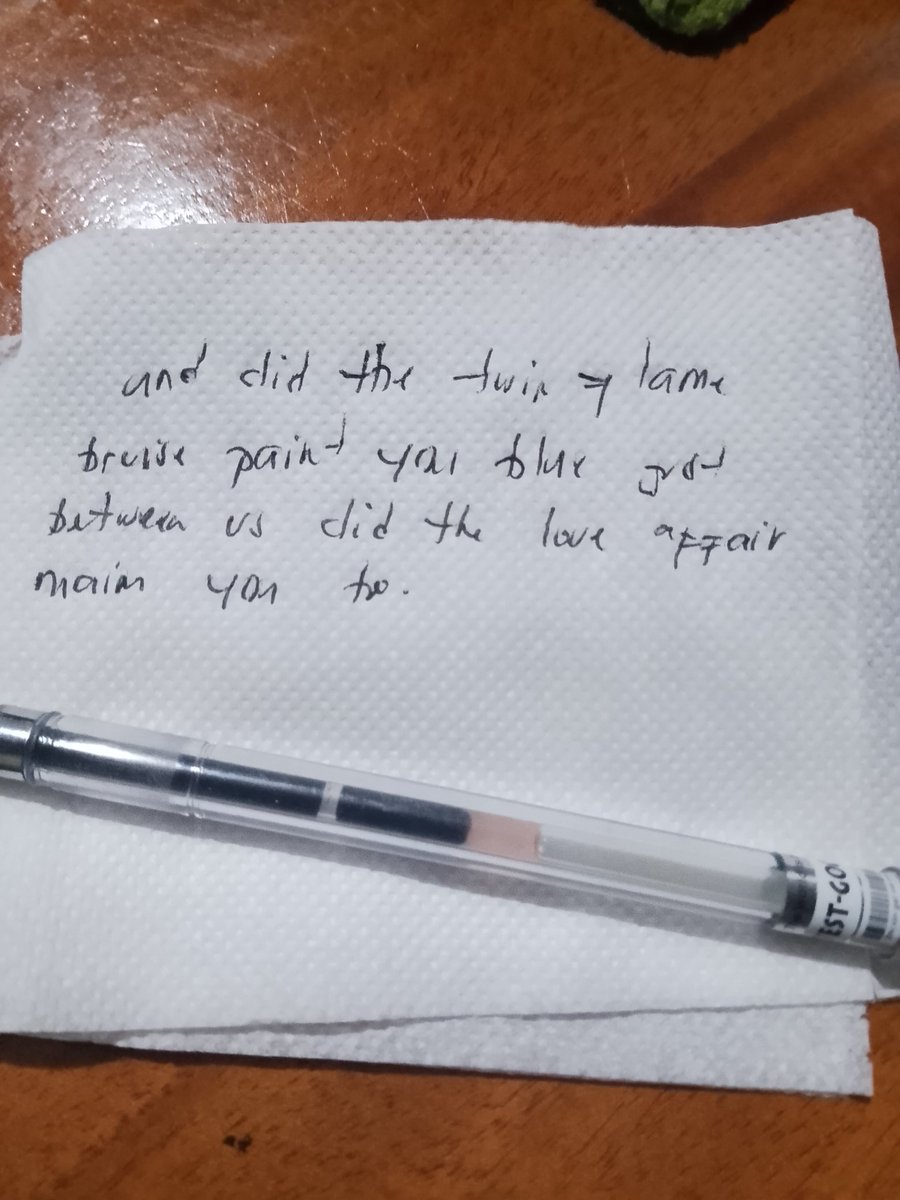 and did the twin flame
bruise paint you blue just
between us did the love affair
maim you too.
EST-GO